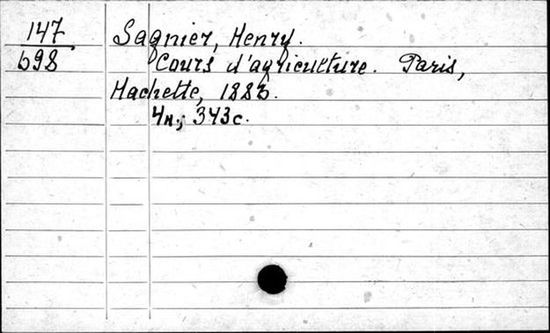 147
698
Sagnier, Henry.
Cours d'agriculture. Paris,
Hachette, 1883.
4н., 343c.